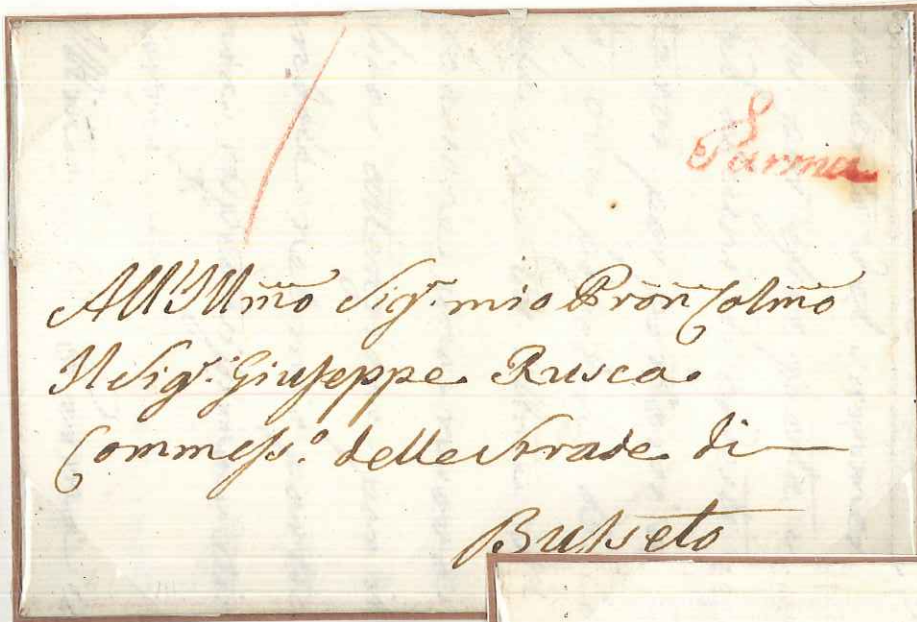 Parma
All'Illmõ Sigr. mio Prõn Colmõ
Il Sigr. Giuseppe Rusca
Commesso. delle Strade di
Busseto